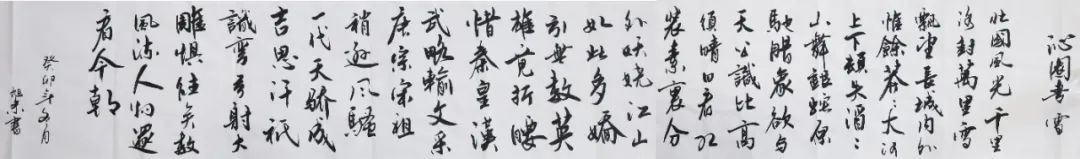 沁園春雪
北國風光千里
冰封萬里雪
飄望長城内外
惟餘莽々大河
上下頓失滔々
山舞銀蛇原
馳腊象欲与
天公試比高
須晴日看红
裝素裹分
外妖嬈江山
如此多嬌
引無數英
雄竞折腰
惜秦皇漢
武略輸文采
唐宗宋祖
稍逊風騷
一代天驕成
吉思汗祇
識彎弓射大
雕俱往矣数
風流人物還
看今朝
癸卯年五月
書